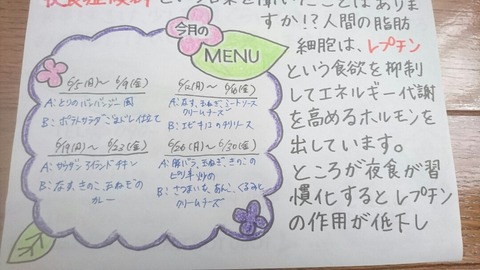 夜食症候群という言葉を聞いたことはありま
すか!?人間の脂肪
細胞は、レプチン
という食欲を抑制
してエネルギー代謝
を高めるホルモンを
出しています。
ところが夜食が習
慣化するとレプチン
の作用が低下し
今月の
MENU
6/5(月)〜6/9(金)
A:とりのバンバンジー風
B:ポテトサラダ ごまドレ仕立て
6/12(月)〜6/16(金)
A:なす、玉ねぎ、ミートソース
クリームチーズ
B:エビキノコのチリソース
6/19(月)〜6/23(金)
A:サウザンアイランドチキン
B:なす、きのこ、玉ねぎの
カレー
6/26(月)〜6/30(金)
A:豚バラ、玉ねぎ、きのこの
ピリ辛炒め
B:さつまいも、あんこ、くるみと
クリームチーズ